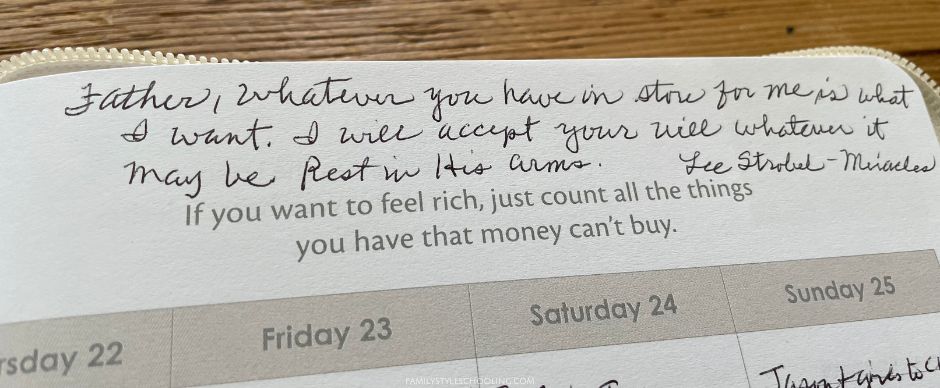 Father, whatever you have in store for me is what
I want. I will accept your will whatever it
may be Rest in His arms. Lee Strobel - Miracles
If you want to feel rich, just count all the things
you have that money can't buy.
rsday 22 Friday 23 Saturday 24 Sunday 25
FAMILYSTYLESCHOOLING.COM